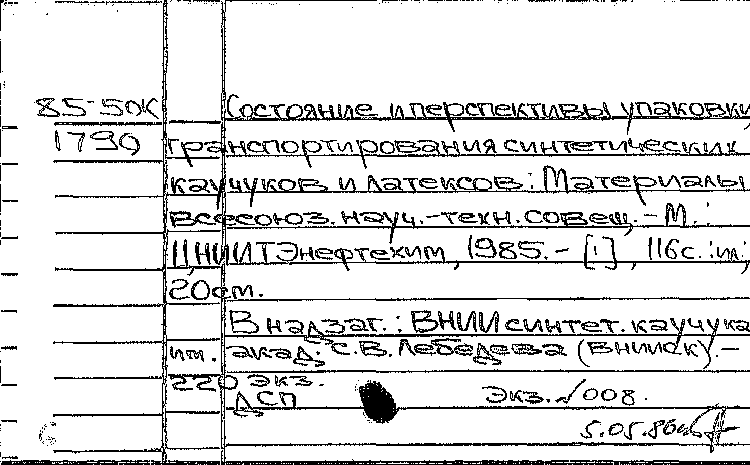 85-50К Состояние и перспективы упаковки,
1790 транспортирования синтетических
каучуков и латексов: Материалы
всесоюз. науч.-техн. совещ. - М.:
ЦНИИТЭнефтехим, 1985. - [1], 116с.: ил.;
20см.
В надзаг.: ВНИИ синтет. каучука
им. акад. С.В. Лебедева (ВНИИСК). -
220 экз.
ДСП Экз. № 008.
5.05.86